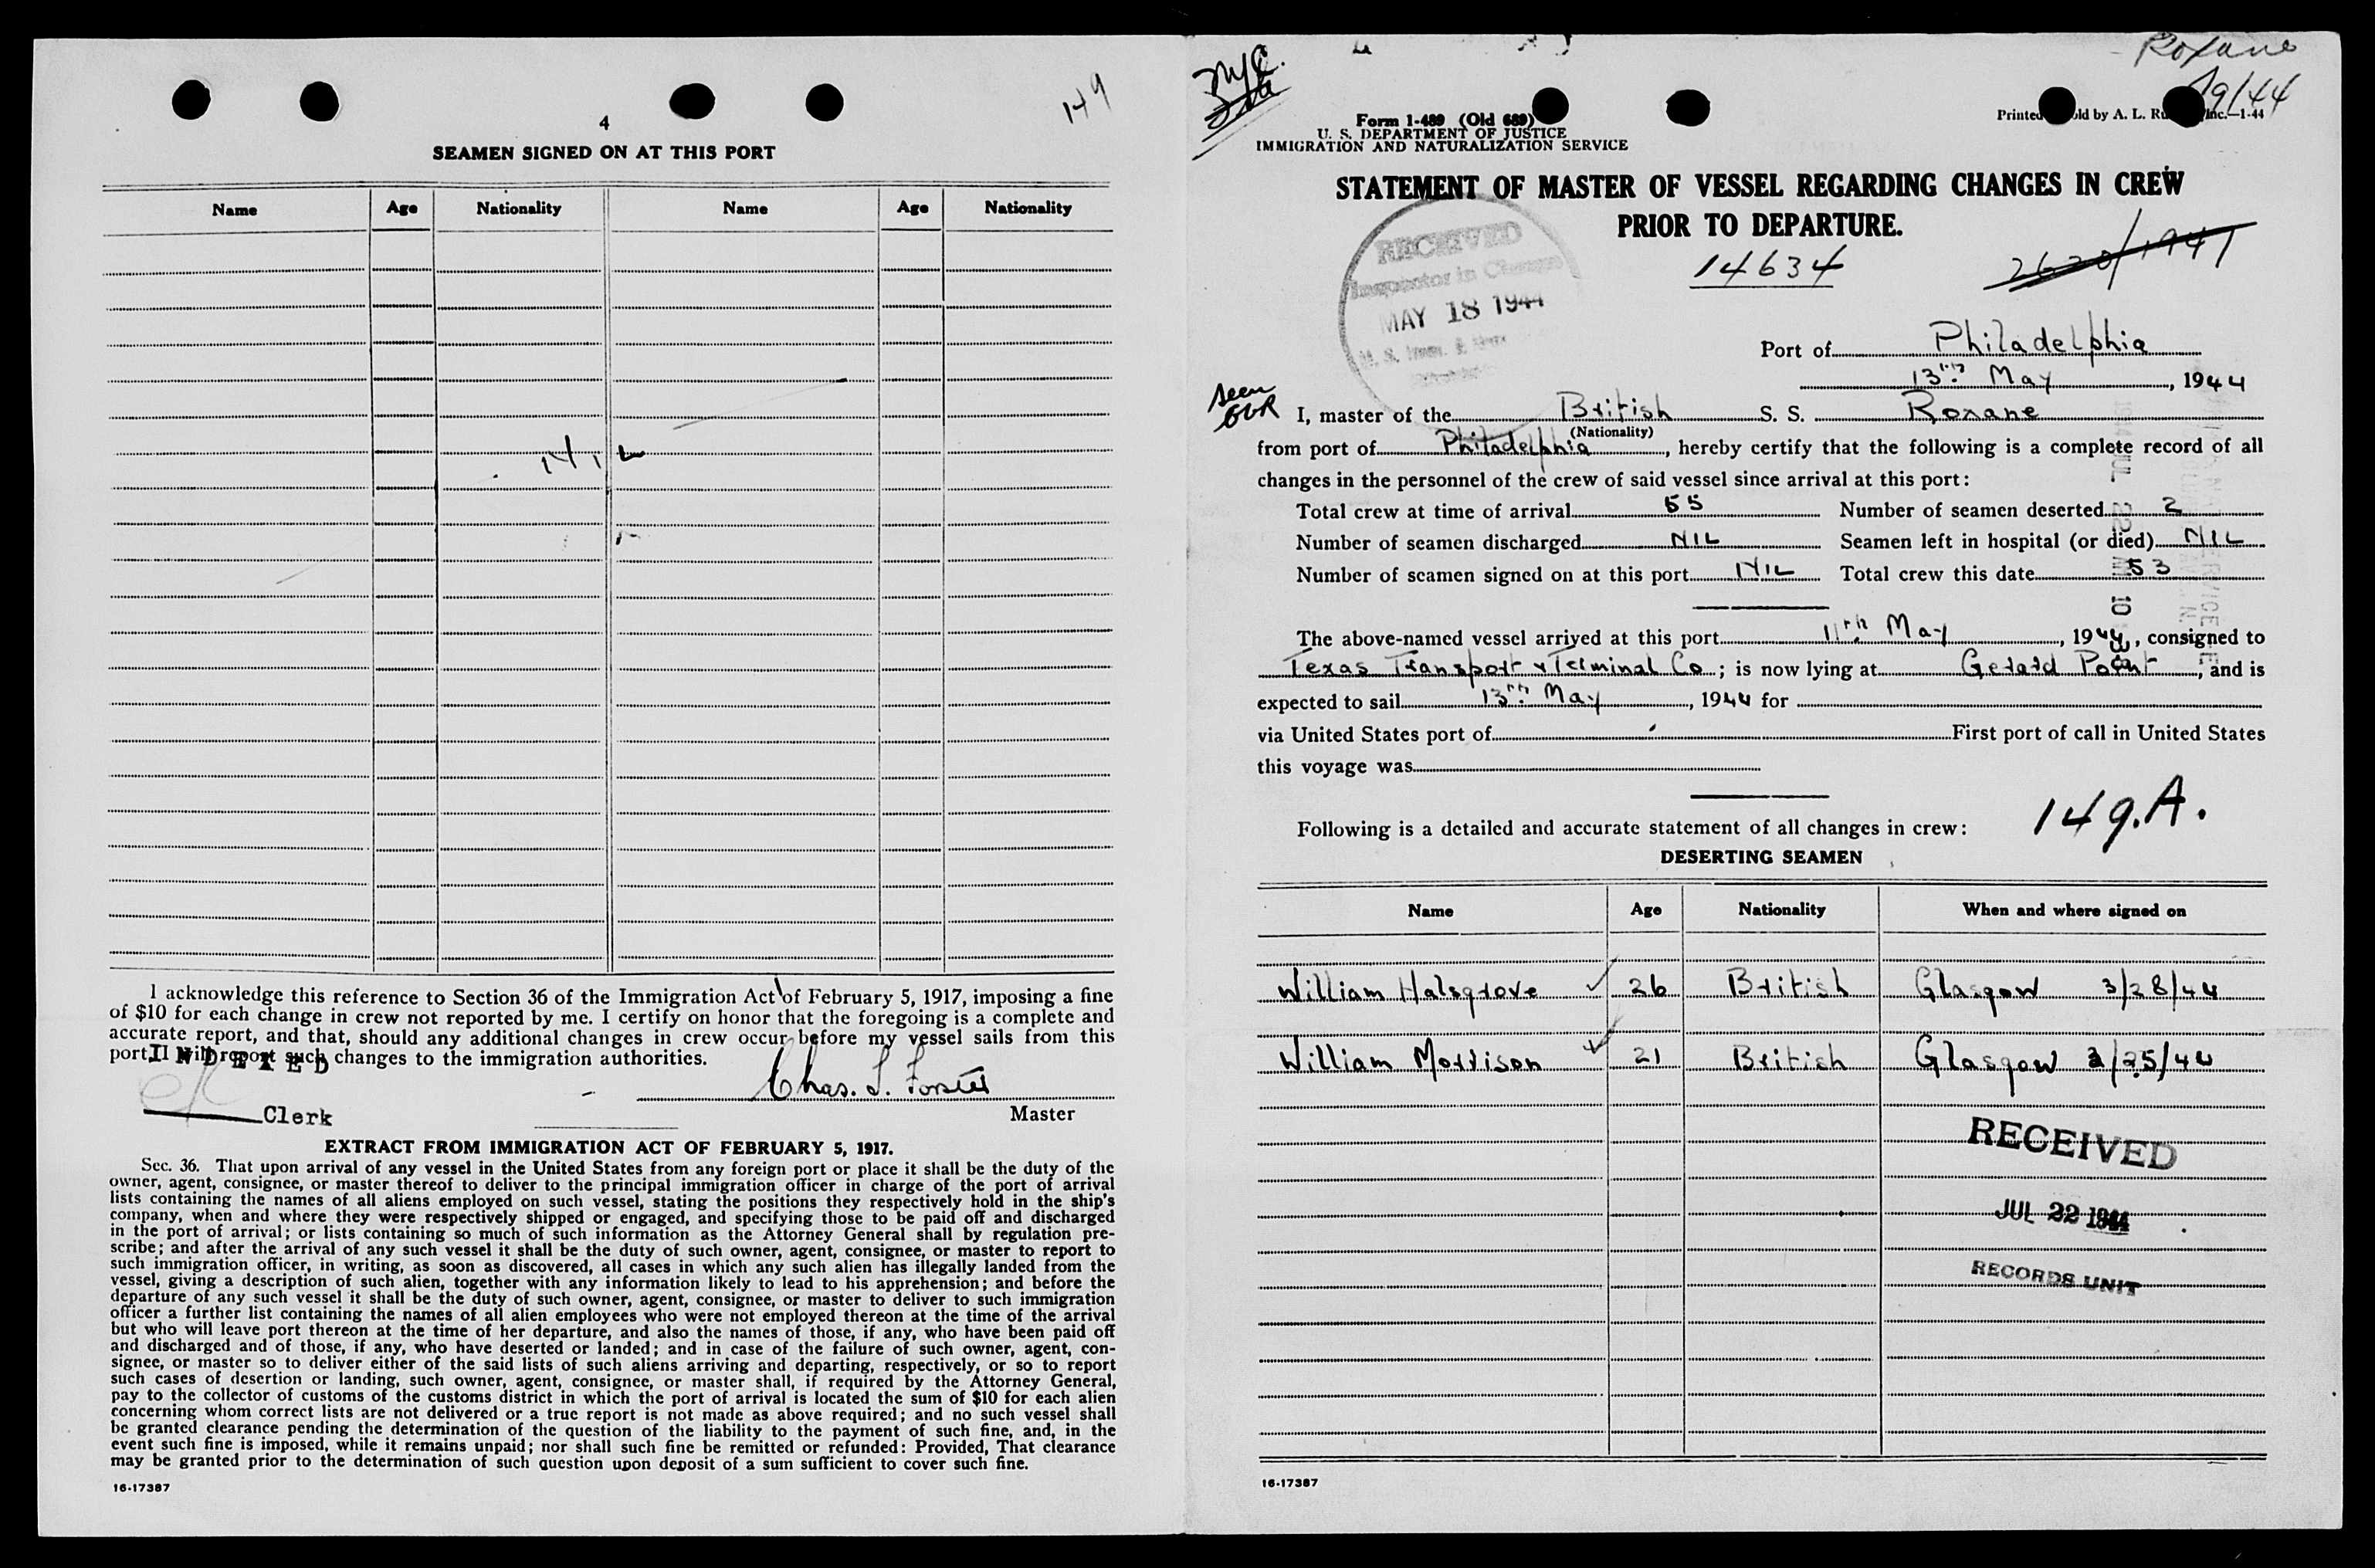 149
4
SEAMEN SIGNED ON AT THIS PORT
Name Age Nationality Name Age Nationality
NIL
I acknowledge this reference to Section 36 of the Immigration Act of February 5, 1917, imposing a fine
of $10 for each change in crew not reported by me. I certify on honor that the foregoing is a complete and
accurate report, and that, should any additional changes in crew occur before my vessel sails from this
port I will report such changes to the immigration authorities.
Chas. S. Forster
Clerk
Master
EXTRACT FROM IMMIGRATION ACT OF FEBRUARY 5, 1917.
Sec. 36. That upon arrival of any vessel in the United States from any foreign port or place it shall be the duty of the
owner, agent, consignee, or master thereof to deliver to the principal immigration officer in charge of the port of arrival
lists containing the names of all aliens employed on such vessel, stating the positions they respectively hold in the ship's
company, when and where they were respectively shipped or engaged, and specifying those to be paid off and discharged
in the port of arrival; or lists containing so much of such information as the Attorney General shall by regulation pre-
scribe; and after the arrival of any such vessel it shall be the duty of such owner, agent, consignee, or master to report to
such immigration officer, in writing, as soon as discovered, all cases in which any such alien has illegally landed from the
vessel, giving a description of such alien, together with any information likely to lead to his apprehension; and before the
departure of any such vessel it shall be the duty of such owner, agent, consignee, or master to deliver to such immigration
officer a further list containing the names of all alien employees who were not employed thereon at the time of the arrival
but who will leave port thereon at the time of her departure, and also the names of those, if any, who have been paid off
and discharged and of those, if any, who have deserted or landed; and in case of the failure of such owner, agent, con-
signee, or master so to deliver either of the said lists of such aliens arriving and departing, respectively, or so to report
such cases of desertion or landing, such owner, agent, consignee, or master shall, if required by the Attorney General,
pay to the collector of customs of the customs district in which the port of arrival is located the sum of $10 for each alien
concerning whom correct lists are not delivered or a true report is not made as above required; and no such vessel shall
be granted clearance pending the determination of the question of the liability to the payment of such fine, and, in the
event such fine is imposed, while it remains unpaid; nor shall such fine be remitted or refunded: Provided, That clearance
may be granted prior to the determination of such question upon deposit of a sum sufficient to cover such fine.
16-17387
Roxane
Form I-489 (Old 689)
Printed by A. L. Inc.—1-44
U. S. DEPARTMENT OF JUSTICE
IMMIGRATION AND NATURALIZATION SERVICE
STATEMENT OF MASTER OF VESSEL REGARDING CHANGES IN CREW
PRIOR TO DEPARTURE.
14634
RECEIVED
Inspector in Charge
MAY 18 1944
Port of Philadelphia
13th May, 1944
Seen
I, master of the British S. S. Roxane
(Nationality)
from port of Philadelphia, hereby certify that the following is a complete record of all
changes in the personnel of the crew of said vessel since arrival at this port:
Total crew at time of arrival 55 Number of seamen deserted 2
Number of seamen discharged NIL Seamen left in hospital (or died) NIL
Number of seamen signed on at this port NIL Total crew this date 53
The above-named vessel arrived at this port 11th May, 1944, consigned to
Texas Transport & Terminal Co; is now lying at Gerard Point, and is
expected to sail 13th May, 1944 for
via United States port of First port of call in United States
this voyage was
149.A.
Following is a detailed and accurate statement of all changes in crew:
DESERTING SEAMEN
Name Age Nationality When and where signed on
William Halsgrove 26 British Glasgow 3/28/44
William Morrison 21 British Glasgow 3/25/44
RECEIVED
JUL 22 1944
RECORDS UNIT
16-17387